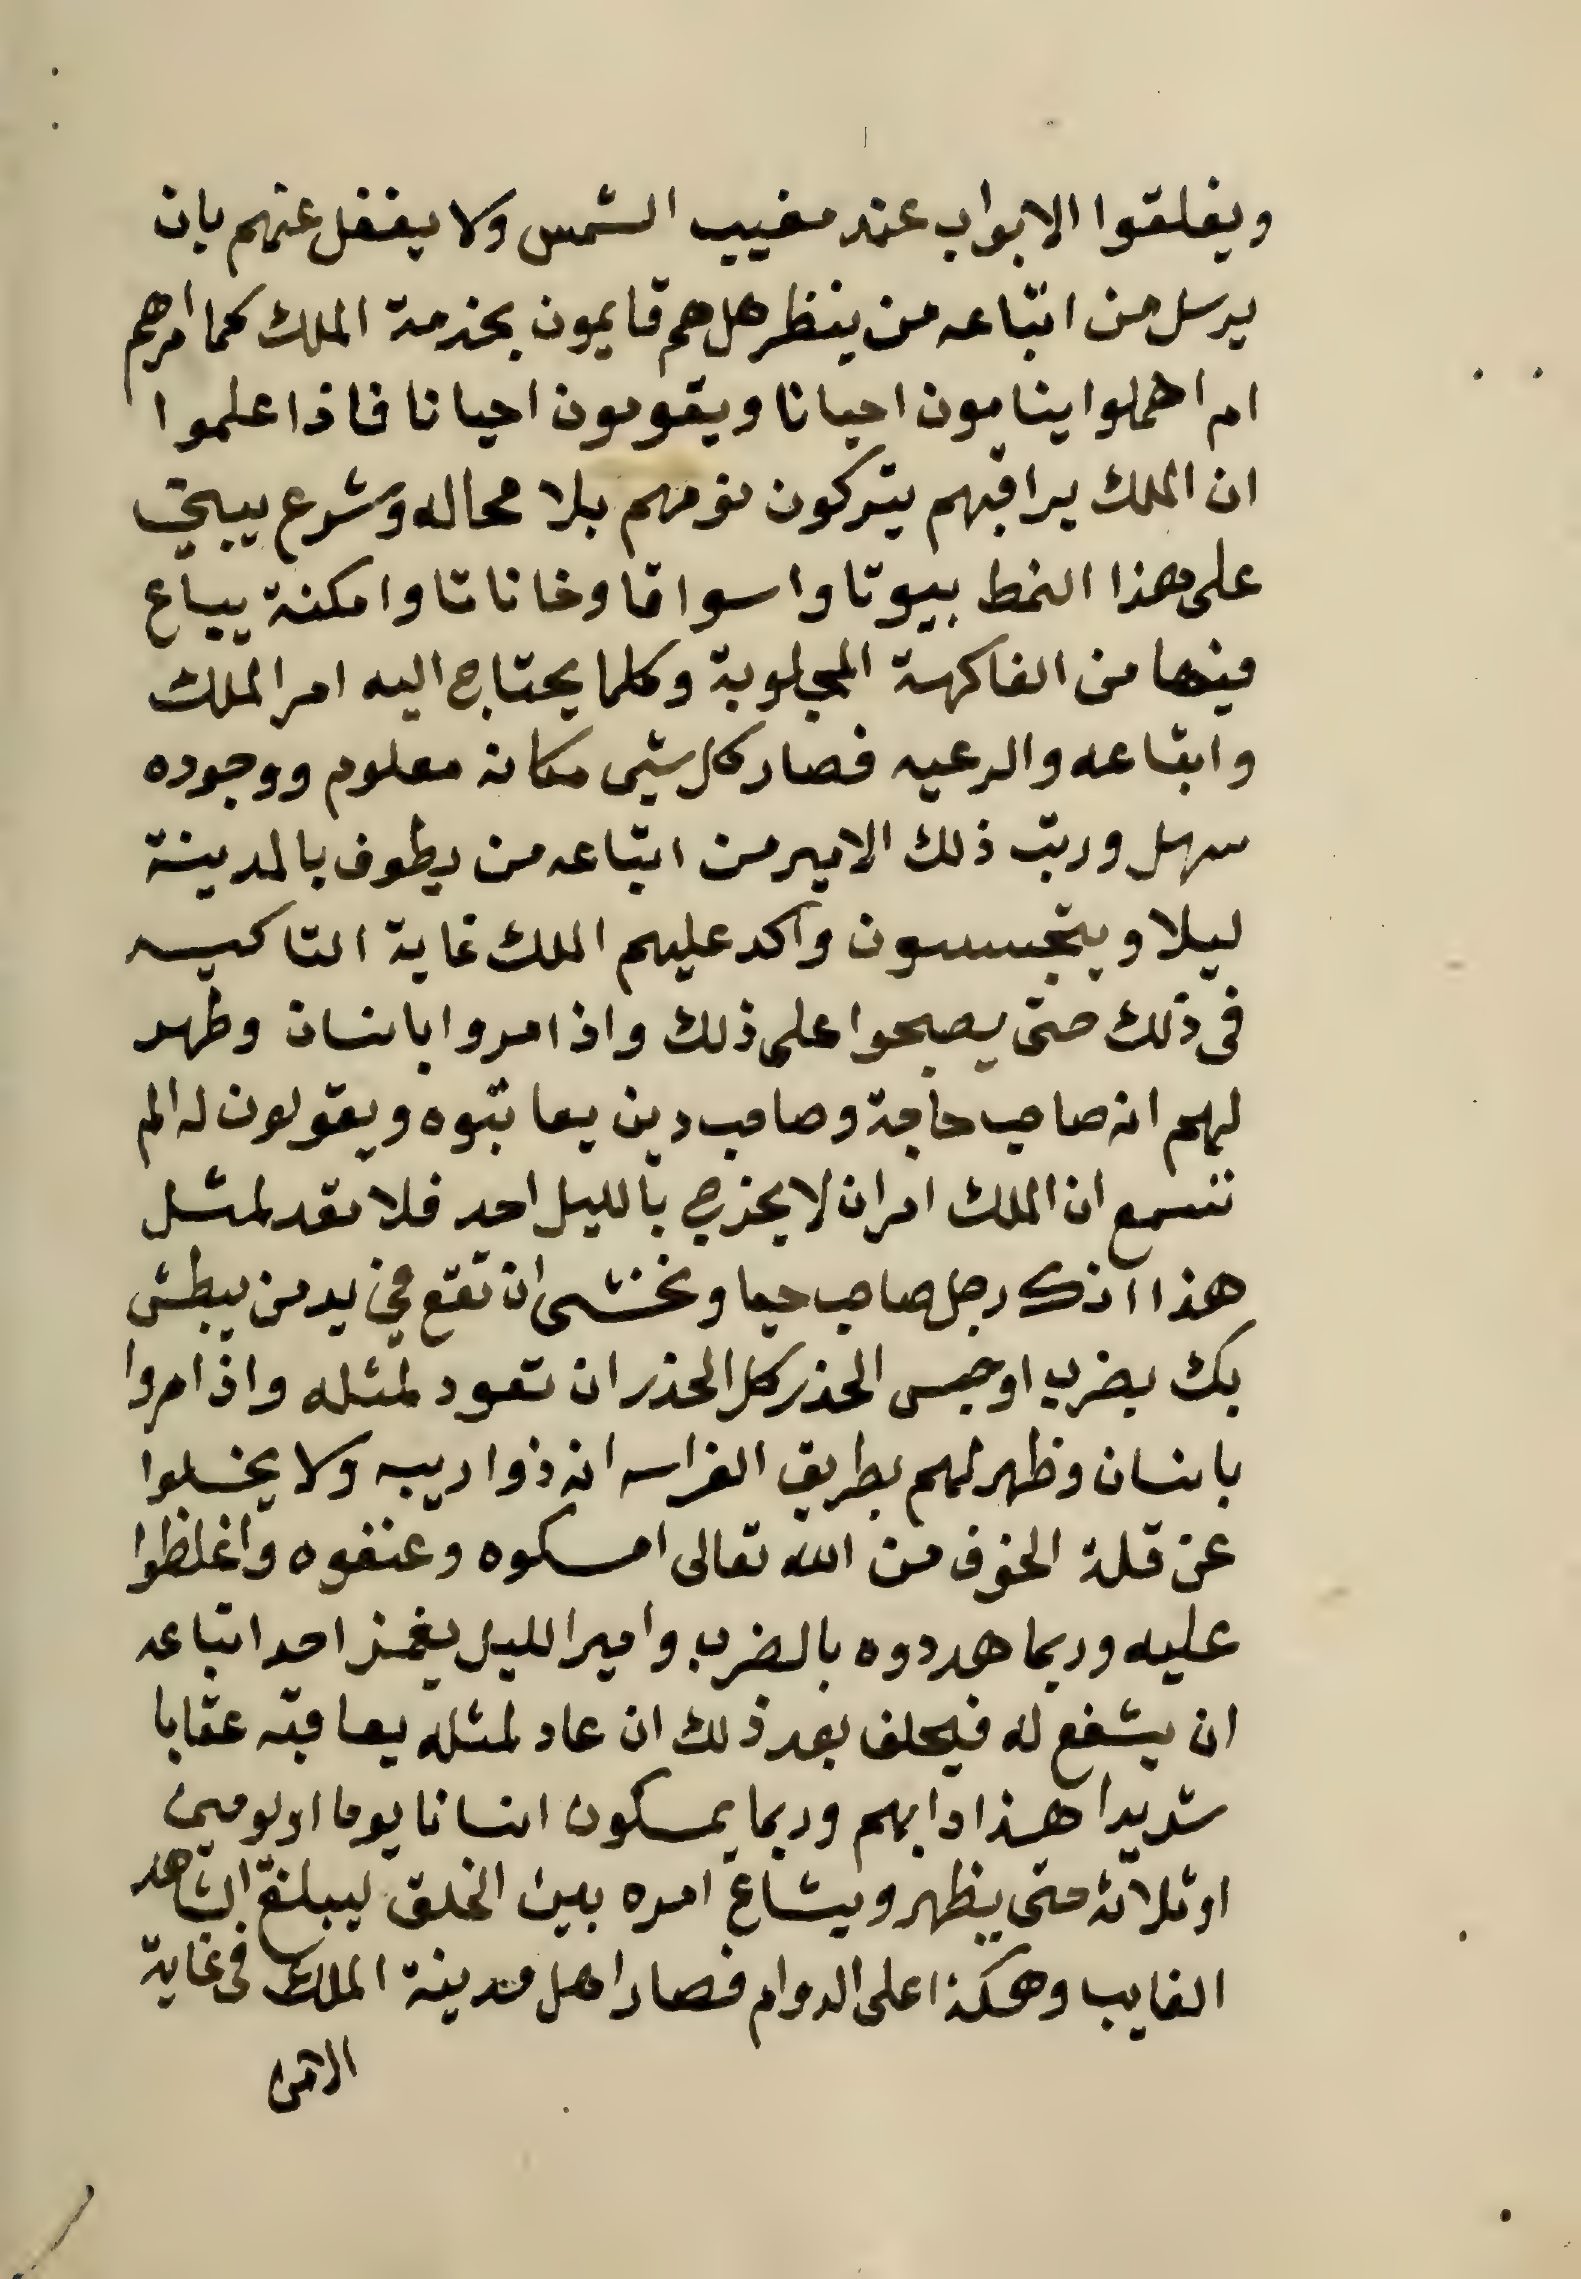 ويغلقوا الابواب عند مغيب الشمس ولا يغفل عنهم بان
يرسل من اتباعه من ينظر هل هم قايمون بخدمة الملك كما امرهم
ام اهملوا ينامون احيانا ويقومون احيانا فاذا علموا
ان الملك يراقبهم يتركون نومهم بلا محاله وشرع يبني
على هذا النمط بيوتا واسواقا وخاناتا وامكنة يباع
فيها من الفاكهة المجلوبة وكلما يحتاج اليه امر الملك
واتباعه والرعيه فصار كل شي مكانه معلوم ووجوده
سهل ورتب ذلك الامير من اتباعه من يطوف بالمدينة
ليلا ويتجسسون واكد عليهم الملك غاية التاكيد
في ذلك حتى يصبحوا على ذلك واذا مروا بانسان وظهر
لهم انه صاحب حاجة وصاحب دين يعاتبوه ويقولون له الم
تسمع ان الملك امر ان لا يخرج بالليل احد فلا تعد لمثل
هذا انك رجل صاحب حيا ونخشى ان تقع في يد من يبطش
بك بضرب او حبس الحذر كل الحذر ان تعود لمثله واذا مروا
بانسان وظهر لهم بطريق الفراسه انه ذوا ريبه ولا يخلوا
عن قلة الخوف من الله تعالى امسكوه وعنفوه واغلظوا
عليه وربما هددوه بالضرب وامير الليل يغمز احد اتباعه
ان يشفع له فيحلف بعد ذلك ان عاد لمثله يعاقبه عقابا
شديدا هذا دابهم وربما يمسكون انسانا يوما او يومين
او ثلاثة حتى يظهر ويشاع امره بين الخلق ليبلغ الشاهد
الغايب وهكذا على الدوام فصار اهل مدينة الملك في غاية
الامن